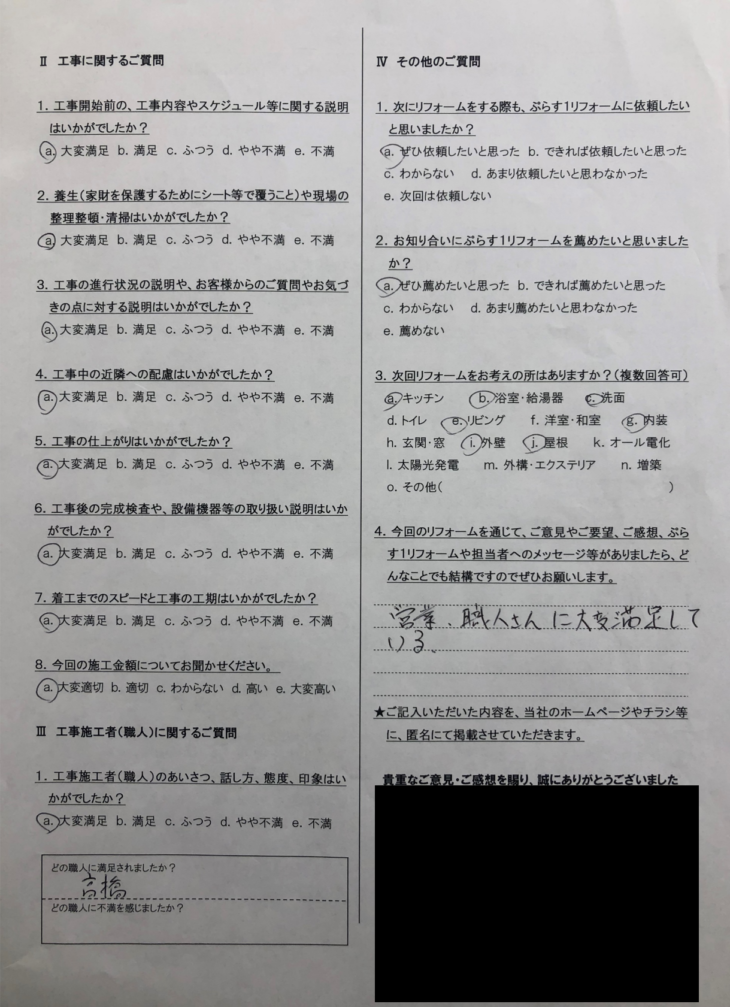 Ⅱ 工事に関するご質問
1. 工事開始前の、工事内容やスケジュール等に関する説明
はいかがでしたか？
a. 大変満足 b. 満足 c. ふつう d. やや不満 e. 不満
2. 養生(家財を保護するためにシート等で覆うこと)や現場の
整理整頓・清掃はいかがでしたか？
a. 大変満足 b. 満足 c. ふつう d. やや不満 e. 不満
3. 工事の進行状況の説明や、お客様からのご質問やお気づ
きの点に対する説明はいかがでしたか？
a. 大変満足 b. 満足 c. ふつう d. やや不満 e. 不満
4. 工事中の近隣への配慮はいかがでしたか？
a. 大変満足 b. 満足 c. ふつう d. やや不満 e. 不満
5. 工事の仕上がりはいかがでしたか？
a. 大変満足 b. 満足 c. ふつう d. やや不満 e. 不満
6. 工事後の完成検査や、設備機器等の取り扱い説明はいか
がでしたか？
a. 大変満足 b. 満足 c. ふつう d. やや不満 e. 不満
7. 着工までのスピードと工事の工期はいかがでしたか？
a. 大変満足 b. 満足 c. ふつう d. やや不満 e. 不満
8. 今回の施工金額についてお聞かせください。
a. 大変適切 b. 適切 c. わからない d. 高い e. 大変高い
Ⅲ 工事施工者(職人)に関するご質問
1. 工事施工者(職人)のあいさつ、話し方、態度、印象はい
かがでしたか？
a. 大変満足 b. 満足 c. ふつう d. やや不満 e. 不満
どの職人に満足されましたか？
高橋
どの職人に不満を感じましたか？
Ⅳ その他のご質問
1. 次にリフォームをする際も、ぷらす1リフォームに依頼したい
と思いましたか？
a. ぜひ依頼したいと思った b. できれば依頼したいと思った
c. わからない d. あまり依頼したいと思わなかった
e. 次回は依頼しない
2. お知り合いにぷらす1リフォームを薦めたいと思いました
か？
a. ぜひ薦めたいと思った b. できれば薦めたいと思った
c. わからない d. あまり薦めたいと思わなかった
e. 薦めない
3. 次回リフォームをお考えの所はありますか？(複数回答可)
a. キッチン b. 浴室・給湯器 c. 洗面
d. トイレ e. リビング f. 洋室・和室 g. 内装
h. 玄関・窓 i. 外壁 j. 屋根 k. オール電化
l. 太陽光発電 m. 外構・エクステリア n. 増築
o. その他( )
4. 今回のリフォームを通じて、ご意見やご要望、ご感想、ぷら
す1リフォームや担当者へのメッセージ等がありましたら、ど
んなことでも結構ですのでぜひお願いします。
営業、職人さんに大変満足して
いる。
★ご記入いただいた内容を、当社のホームページやチラシ等
に、匿名にて掲載させていただきます。
貴重なご意見・ご感想を賜り、誠にありがとうございました